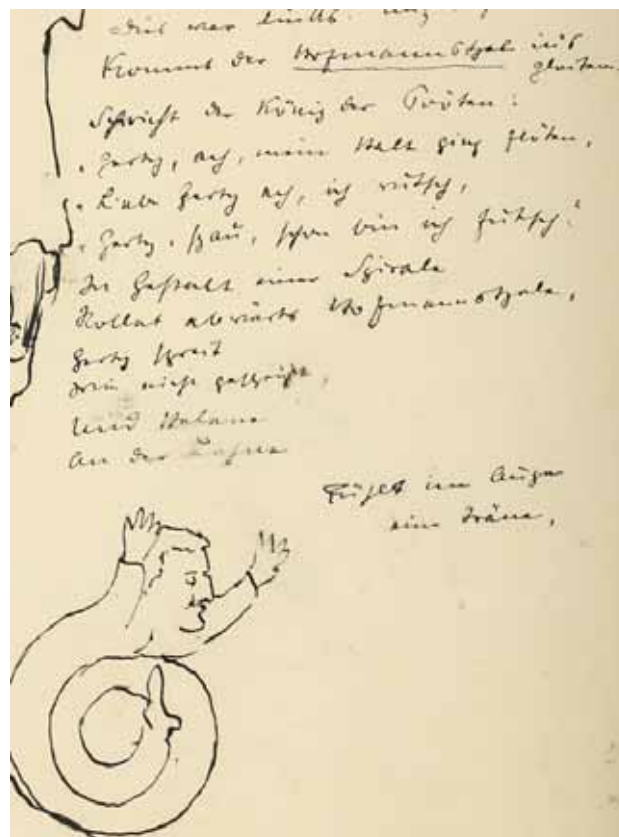 Kommt der Hofmannsthal ins
gleiten.
Spricht der König der Poëten:
„Gerty, ach, mein Halt ging flöten,
„Liebe Gerty ach, ich rutsch,
„Gerty, schau, schon bin ich futsch!“
In Gestalt einer Spirale
Rollet abwärts Hofmannsthale,
Gerty schreit
nicht gescheit,
Und Helene
An der Lehne
Fühlet im Auge
eine Träne,